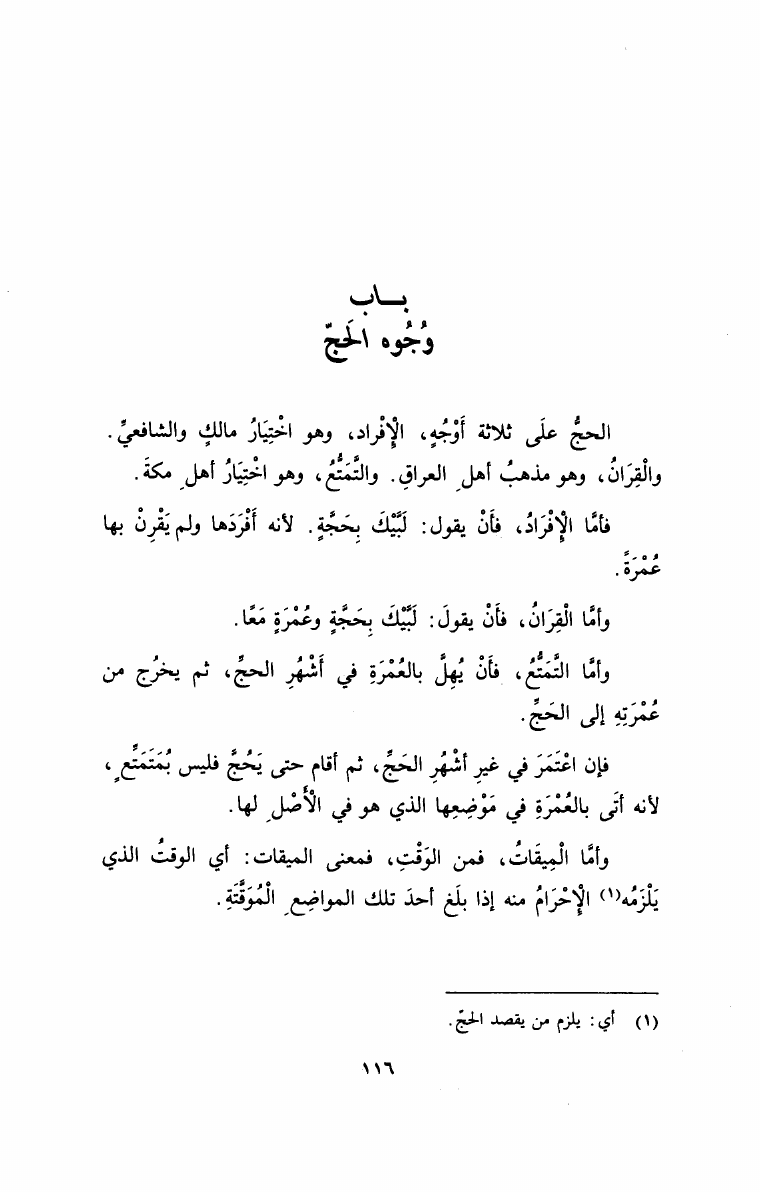 بــاب
وُجُوه الحَجّ
الحجُّ علَى ثلاثة أَوْجُهٍ، الْإِفْراد، وهو اخْتِيَارُ مالكٍ والشافعيِّ.
والْقِرَانُ، وهو مذهبُ أهلِ العراقِ. والتَّمَتُّعُ، وهو اخْتِيَارُ أهلِ مكةَ.
فأمَّا الْإِفْرَادُ، فأنْ يقول: لَبَّيْكَ بِحَجَّةٍ. لأنه أَفْرَدَها ولم يَقْرِنْ بها
عُمْرَةً.
وأمَّا الْقِرَانُ، فأنْ يقولَ: لَبَّيْكَ بِحَجَّةٍ وعُمْرَةٍ مَعًا.
وأمَّا التَّمَتُّعُ، فأنْ يُهِلَّ بالعُمْرَةِ في أَشْهُرِ الحجِّ، ثم يخرُج من
عُمْرَتِهِ إلى الحَجِّ.
فإن اعْتَمَرَ في غيرِ أشْهُرِ الحَجِّ، ثم أقام حتى يَحُجَّ فليس بُمَتَمَتِّعٍ،
لأنه أتَى بالعُمْرَةِ في مَوْضِعِها الذي هو في الْأَصْلِ لها.
وأمَّا الْمِيقَاتُ، فمن الوَقْتِ، فمعنى الميقات: أي الوقتُ الذي
يَلْزَمُه(١) الْإِحْرَامُ منه إذا بلَغ أحدَ تلك المواضِعِ الْمُوَقَّتَةِ.
(١) أي: يلزم من يقصد الحجّ.
١١٦